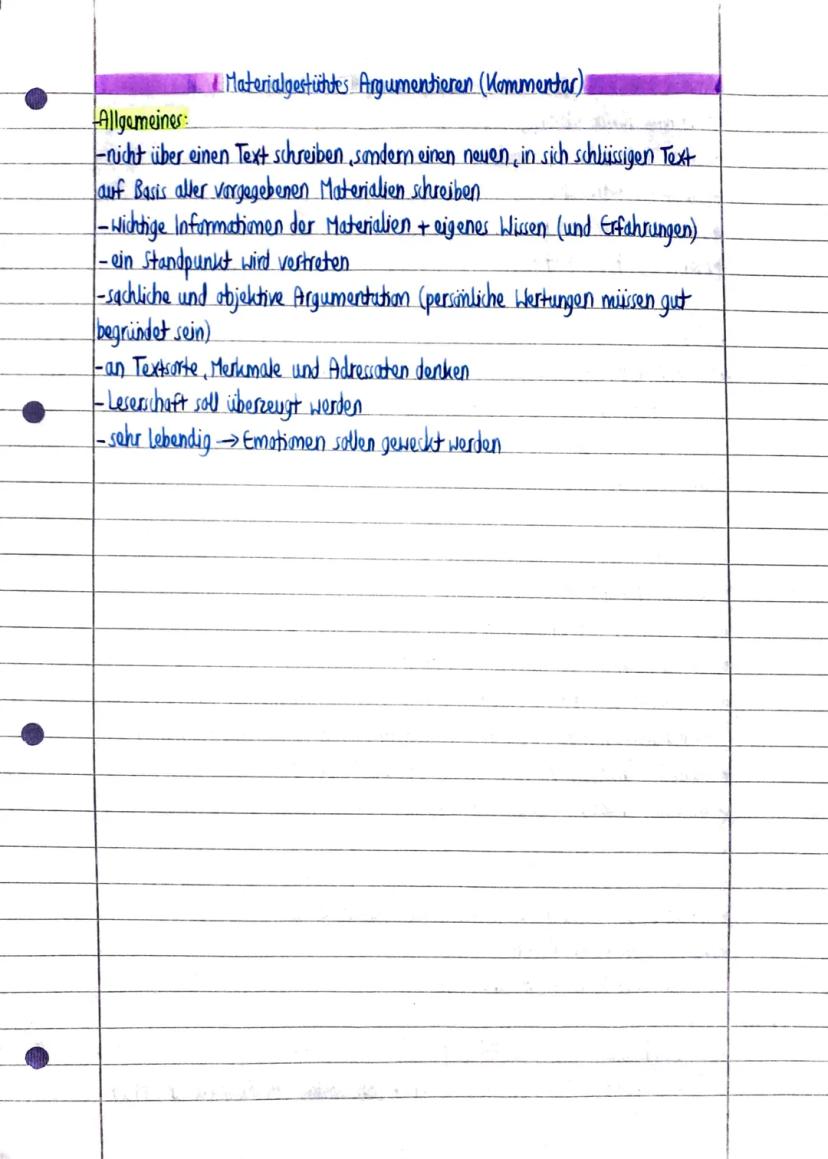 Materialgestütztes Argumentieren (Kommentar)
Allgemeines:
-nicht über einen Text schreiben, sondern einen neuen, in sich schlüssigen Text
auf Basis aller vorgegebenen Materialien schreiben
-wichtige Informationen der Materialien + eigenes Wissen (und Erfahrungen)
-ein Standpunkt wird vertreten
-sachliche und objektive Argumentation (persönliche Wertungen müssen gut
begründet sein)
-an Textsorte, Merkmale und Adressaten denken
-Leserschaft soll überzeugt werden
-sehr lebendig → Emotionen sollen geweckt werden